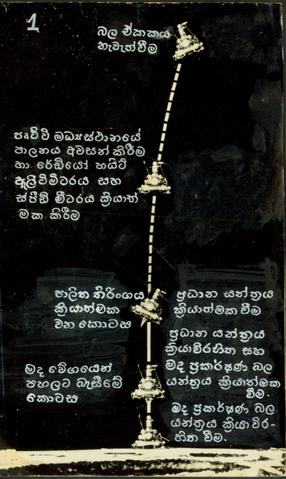 1
බල ඒකකය
නැවැත්වීම
පෘථිවි මධ්‍යස්ථානයේ
පාලනය අවසන් කිරීම
හා රේඩියෝ හයිට්
ඇල්ටිමීටරය සහ
ස්පීඩ් මීටරය ක්‍රියාත්
මක කිරීම
පාලිත තිරිංගය
ක්‍රියාත්මක
වන කොටස
ප්‍රධාන යන්ත්‍රය
ක්‍රියාත්මක වීම
ප්‍රධාන යන්ත්‍රය
ක්‍රියාවිරහිත සහ
මද ප්‍රකර්ෂණ බල
යන්ත්‍රය ක්‍රියාත්මක
වීම.
මද වේගයෙන්
පහලට බැසීමේ
කොටස
මද ප්‍රකර්ෂණ බල
යන්ත්‍රය ක්‍රියාවිර-
හිත වීම.